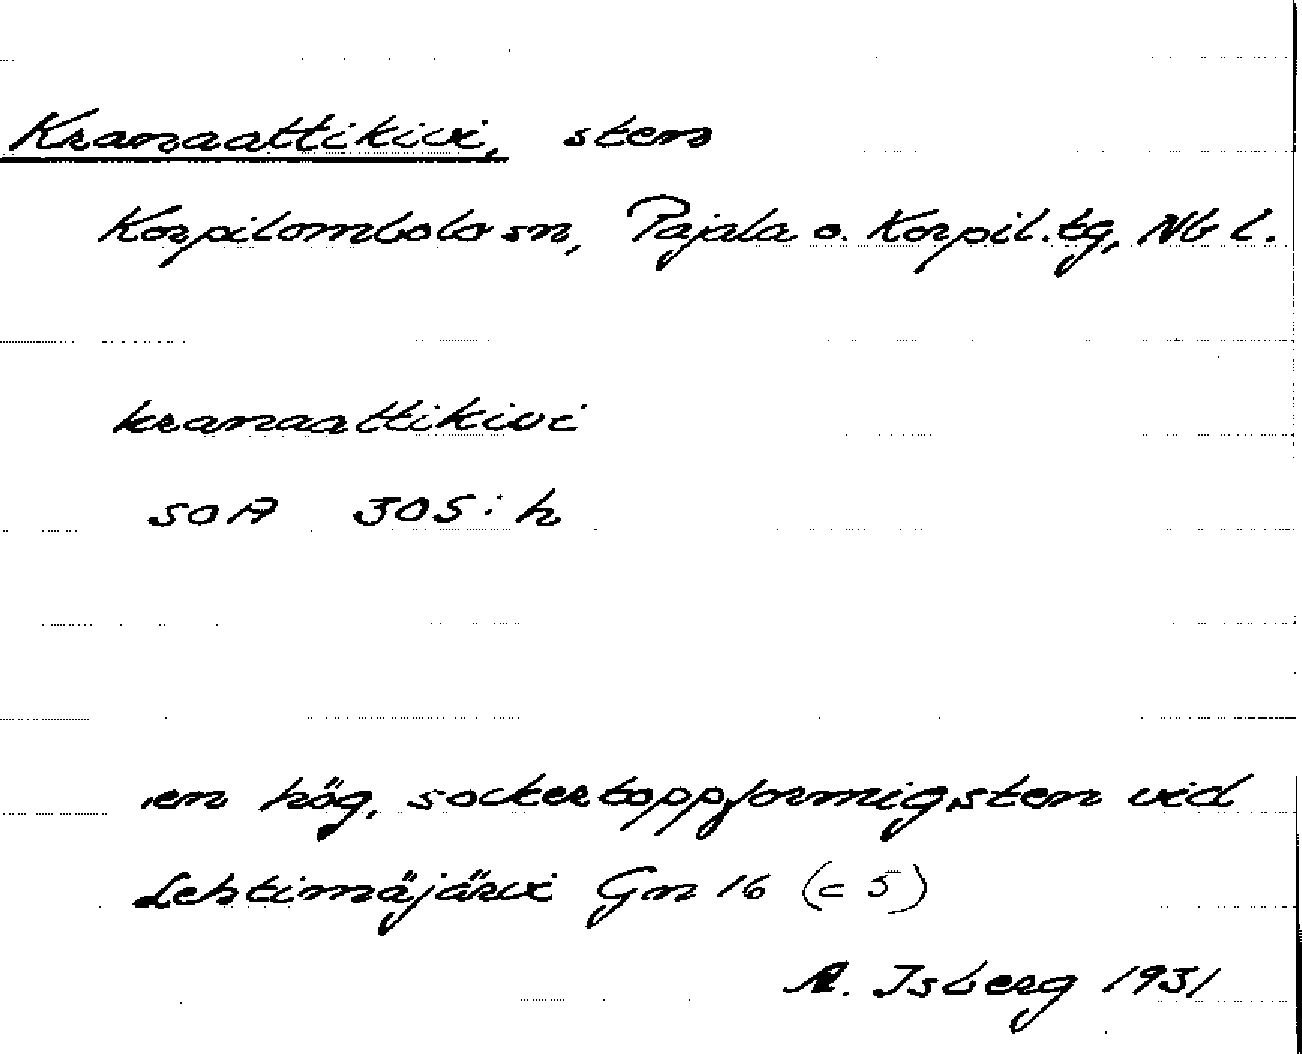 Kranaattikivi, sten
Korpilombolo sn, Pajala o. Korpil. tg, Nb l.
kranaattikivi
SOA 305: h
en hög, sockertoppformig sten vid
Lehtimäjärvi Gm 16 (c 5)
A. Isberg 1931